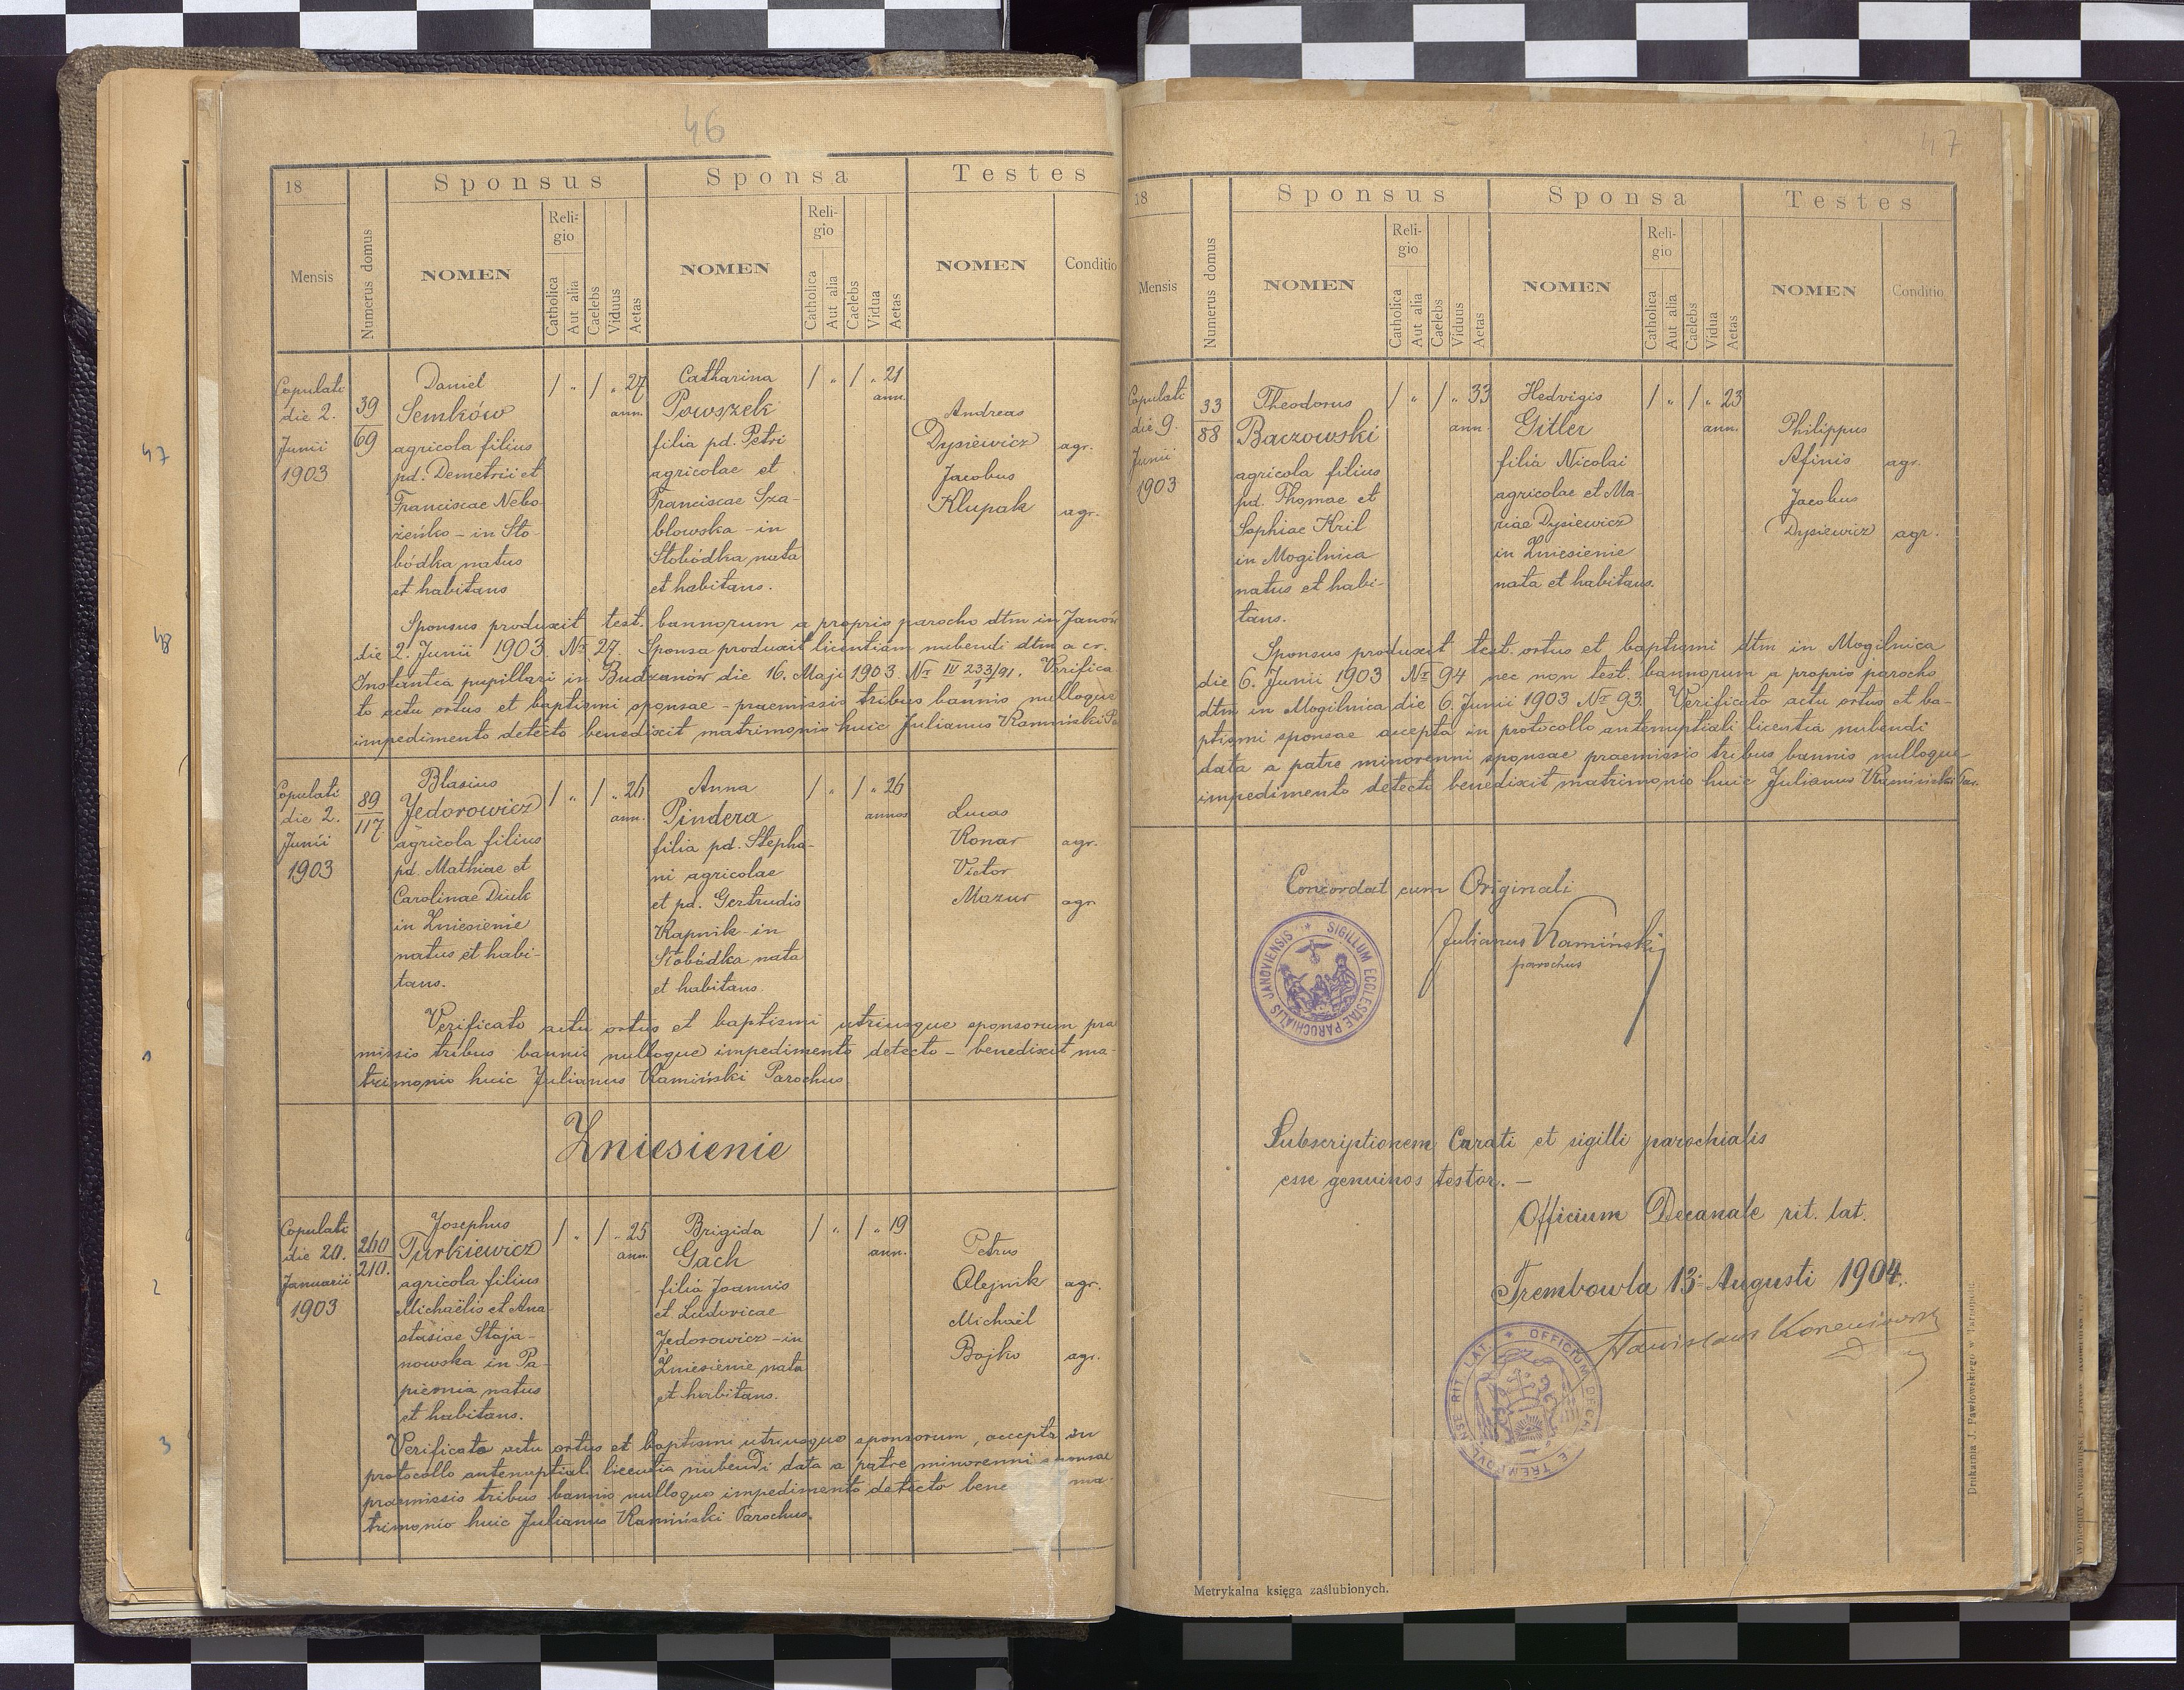 46
18
Mensis
Numerus domus
Sponsus
NOMEN
Reli-
gio
Catholica
Aut alia
Caelebs
Viduus
Aetas
Sponsa
NOMEN
Reli-
gio
Catholica
Aut alia
Caelebs
Vidua
Aetas
Testes
NOMEN
Conditio
47
48
1
2
3
Copulati
die 2.
Junii
1903
39
69
Daniel
Semków
agricola filius
pd. Demetrii et
Franciscae Nebo-
żeńko - in Sło-
bódka natus
et habitans
/ " / " 27
ann.
Catharina
Powszek
filia pd. Petri
agricolae et
Franciscae Sza-
blowska - in
Słobódka nata
et habitans.
/ " / " 21
ann.
Andreas
Dysiewicz agr.
Jacobus
Klupak agr.
Sponsus produxit test. bannorum a proprio parocho dtm in Janów
die 2. Junii 1903 No 27. Sponsa produxit licentiam nubendi dtm a cr.
Instantia pupillari in Budzanów die 16. Maji 1903 Nr IV 233/91. Verifica-
to actu ortus et baptismi sponsae - praemissis tribus bannis nulloque
impedimento detecto benedixit matrimonio huic Julianus Kamiński Pa
Copulati
die 2.
Junii
1903
89
117
Blasius
Jedorowicz
agricola filius
pd. Mathiae et
Carolinae Diuk
in Zniesienie
natus et habi-
tans.
/ " / " 26
ann.
Anna
Pindera
filia pd. Stepha-
ni agricolae
et pd. Gertrudis
Kapnik - in
Słobódka nata
et habitans.
/ " / " 26
annos
Lucas
Konar agr.
Victor
Mazur agr
Verificato actu ortus et baptismi utriusque sponsorum prae
missis tribus bannis nulloque impedimento detecto - benedixit ma-
trimonio huic Julianus Kamiński Parochus
Zniesienie
Copulati
die 20.
Januarii
1903
260
210.
Josephus
Turkiewicz
agricola filius
Michaëlis et Ana-
stasiae Staja-
nowska in Pa-
piernia natus
et habitans.
/ " / " 25
ann.
Brigida
Gach
filia Joannis
et Ludovicae
Jedorowicz - in
Zniesienie nata
et habitans.
/ " / " 19
ann.
Petrus
Olejnik agr.
Michael
Bojko agr.
Verificato actu ortus et baptismi utriusque sponsorum, accepta in
protocollo antenuptiali licentia nubendi data a patre minorenni sponsae
praemissis tribus bannis nulloque impedimento detecto bene ma-
trimonio huic Julianus Kamiński Parochus.
47
18
Mensis
Numerus domus
Sponsus
NOMEN
Reli-
gio
Catholica
Aut alia
Caelebs
Viduus
Aetas
Sponsa
NOMEN
Reli-
gio
Catholica
Aut alia
Caelebs
Vidua
Aetas
Testes
NOMEN
Conditio
Copulati
die 9.
Junii
1903
33
88
Theodorus
Baczowski
agricola filius
pd. Thomae et
Sophiae Kril
in Mogilnica
natus et habi-
tans.
/ " / " 33
ann.
Hedvigis
Gitler
filia Nicolai
agricolae et Ma-
riae Dysiewicz
in Zniesienie
nata et habitans.
/ " / " 23
ann.
Philippus
Afinis agr.
Jacobus
Dysiewicz agr.
Sponsus produxit test. ortus et baptismi dtm in Mogilnica
die 6. Junii 1903 No 94 nec non test. bannorum a proprio parocho
dtm in Mogilnica die 6. Junii 1903 No 93. Verificato actu ortus et ba-
ptismi sponsae accepta in protocollo antenuptiali licentia nubendi
data a patre minorenni sponsae praemissis tribus bannis nulloque
impedimento detecto benedixit matrimonio huic Julianus Kamiński Par.
Concordat cum Originali
Julianus Kamiński
parochus
SIGILLUM ECCLESIAE PAROCHIALIS JANOVIENSIS
Subscriptionem Curati et sigilli parochialis
esse genuinos testor. -
Officium Decanale rit. lat.
Trembowla 13 Augusti 1904.
Stanislaus
OFFICIUM DECANALE TREMBOVLENSE RIT. LAT.
Metrykalna księga zaślubionych.
Drukarnia J. Pawłowskiego w Tarnopolu.